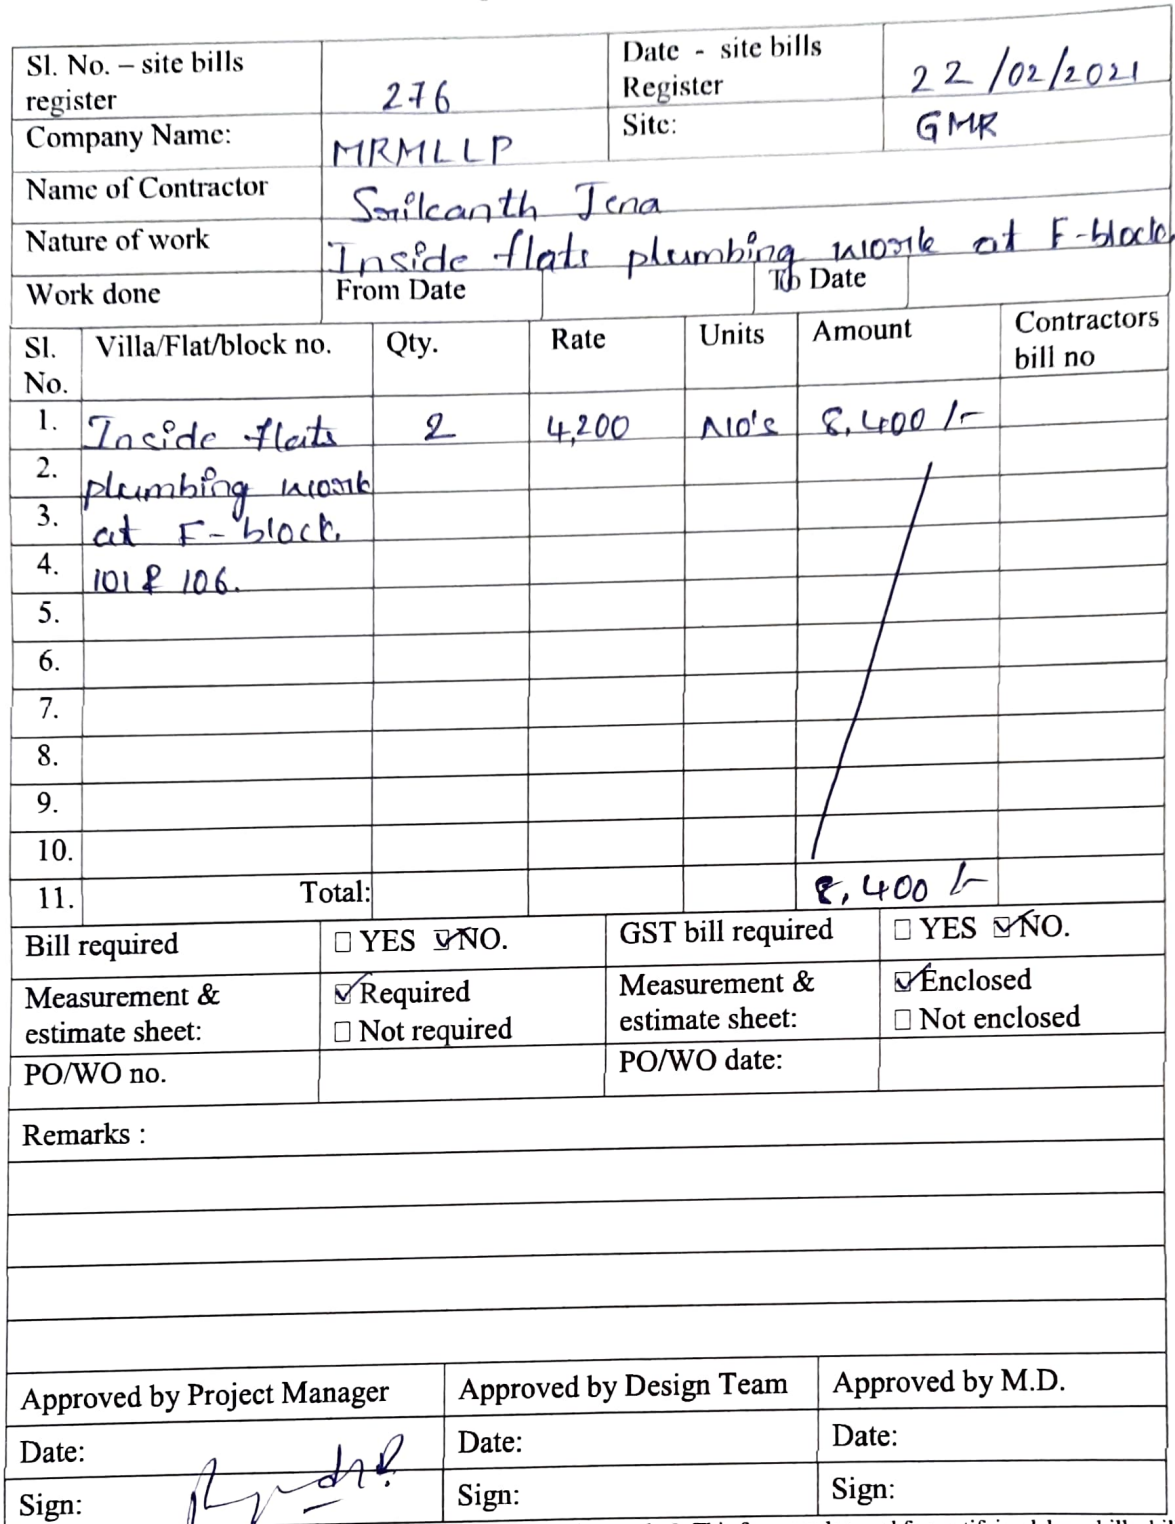 Sl. No. – site bills register 276 Date - site bills Register 22/02/2021
Company Name: MRMLLP Site: GMR
Name of Contractor Srikanth Jena
Nature of work Inside flats plumbing work at F-block
Work done From Date To Date
Sl. No. Villa/Flat/block no. Qty. Rate Units Amount Contractors bill no
1. Inside flats 2 4,200 NO's 8,400 /-
2. plumbing work
3. at F-block.
4. 101 & 106.
5.
6.
7.
8.
9.
10.
11. Total: 8,400 /-
Bill required ☐ YES ☑ NO. GST bill required ☐ YES ☑ NO.
Measurement & estimate sheet: ☑ Required ☐ Not required Measurement & estimate sheet: ☑ Enclosed ☐ Not enclosed
PO/WO no. PO/WO date:
Remarks :
Approved by Project Manager Approved by Design Team Approved by M.D.
Date: Date: Date:
Sign: Sign: Sign: